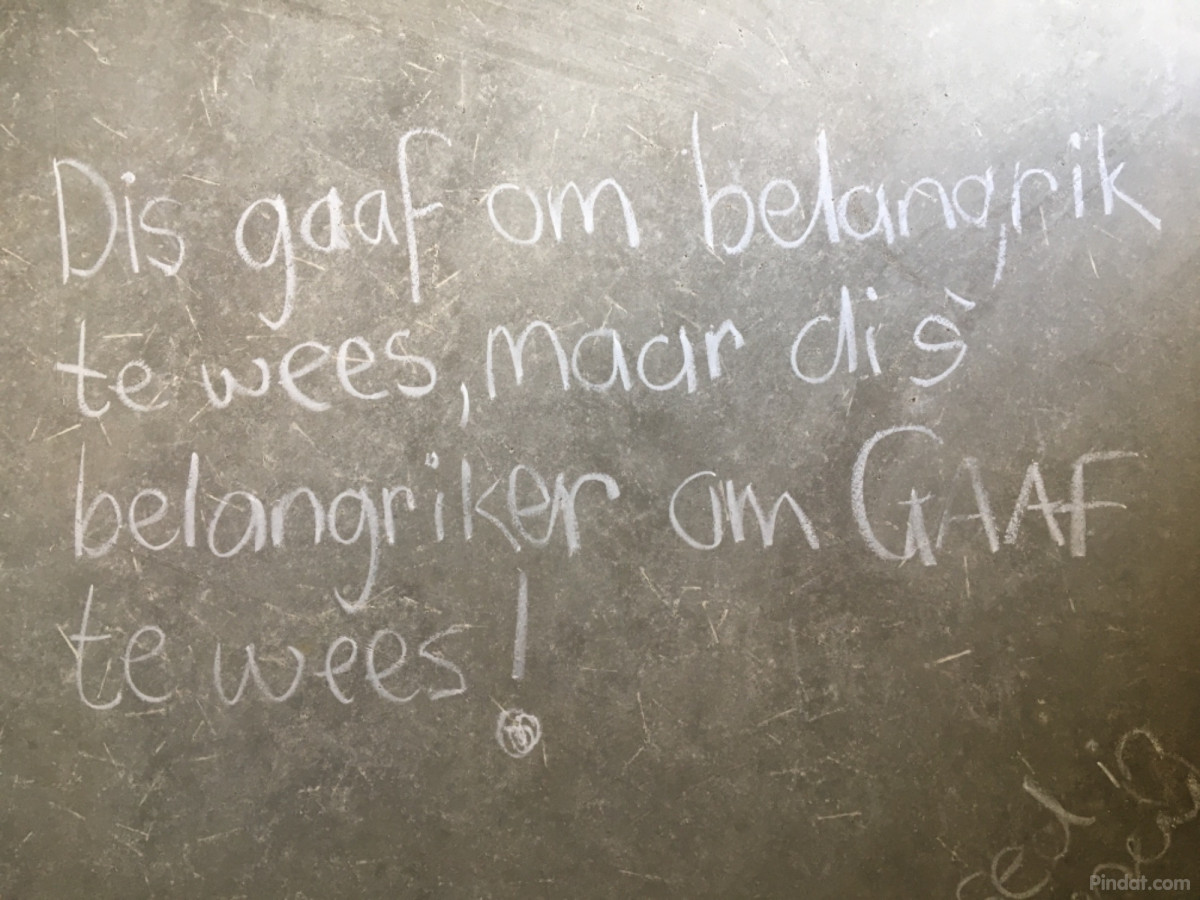 Dis gaaf om belangrik
te wees, maar dis
belangriker om GAAF
te wees!
Pindat.com